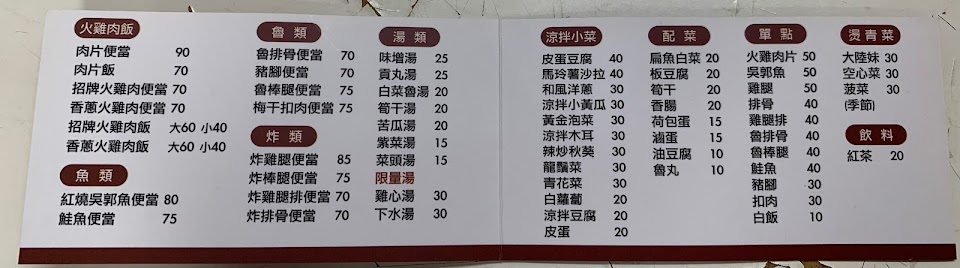 火雞肉飯
肉片便當 90
肉片飯 70
招牌火雞肉便當 70
香蔥火雞肉便當 70
招牌火雞肉飯 大60 小40
香蔥火雞肉飯 大60 小40
魚類
紅燒吳郭魚便當 80
鮭魚便當 75
魯類
魯排骨便當 70
豬腳便當 70
魯棒腿便當 75
梅干扣肉便當 75
炸類
炸雞腿便當 85
炸棒腿便當 75
炸雞腿排便當 70
炸排骨便當 70
湯類
味增湯 25
貢丸湯 25
白菜魯湯 20
筍干湯 20
苦瓜湯 20
紫菜湯 15
菜頭湯 15
限量湯
雞心湯 30
下水湯 30
涼拌小菜
皮蛋豆腐 40
馬玲薯沙拉 40
和風洋蔥 30
涼拌小黃瓜 30
黃金泡菜 30
涼拌木耳 30
辣炒秋葵 30
龍鬚菜 30
青花菜 30
白蘿蔔 20
涼拌豆腐 20
皮蛋 20
配菜
扁魚白菜 20
板豆腐 20
筍干 20
香腸 20
荷包蛋 15
滷蛋 15
油豆腐 10
魯丸 10
單點
火雞肉片 50
吳郭魚 50
雞腿 50
排骨 40
雞腿排 40
魯排骨 40
魯棒腿 40
鮭魚 40
豬腳 30
扣肉 30
白飯 10
燙青菜
大陸妹 30
空心菜 30
菠菜 30
(季節)
飲料
紅茶 20